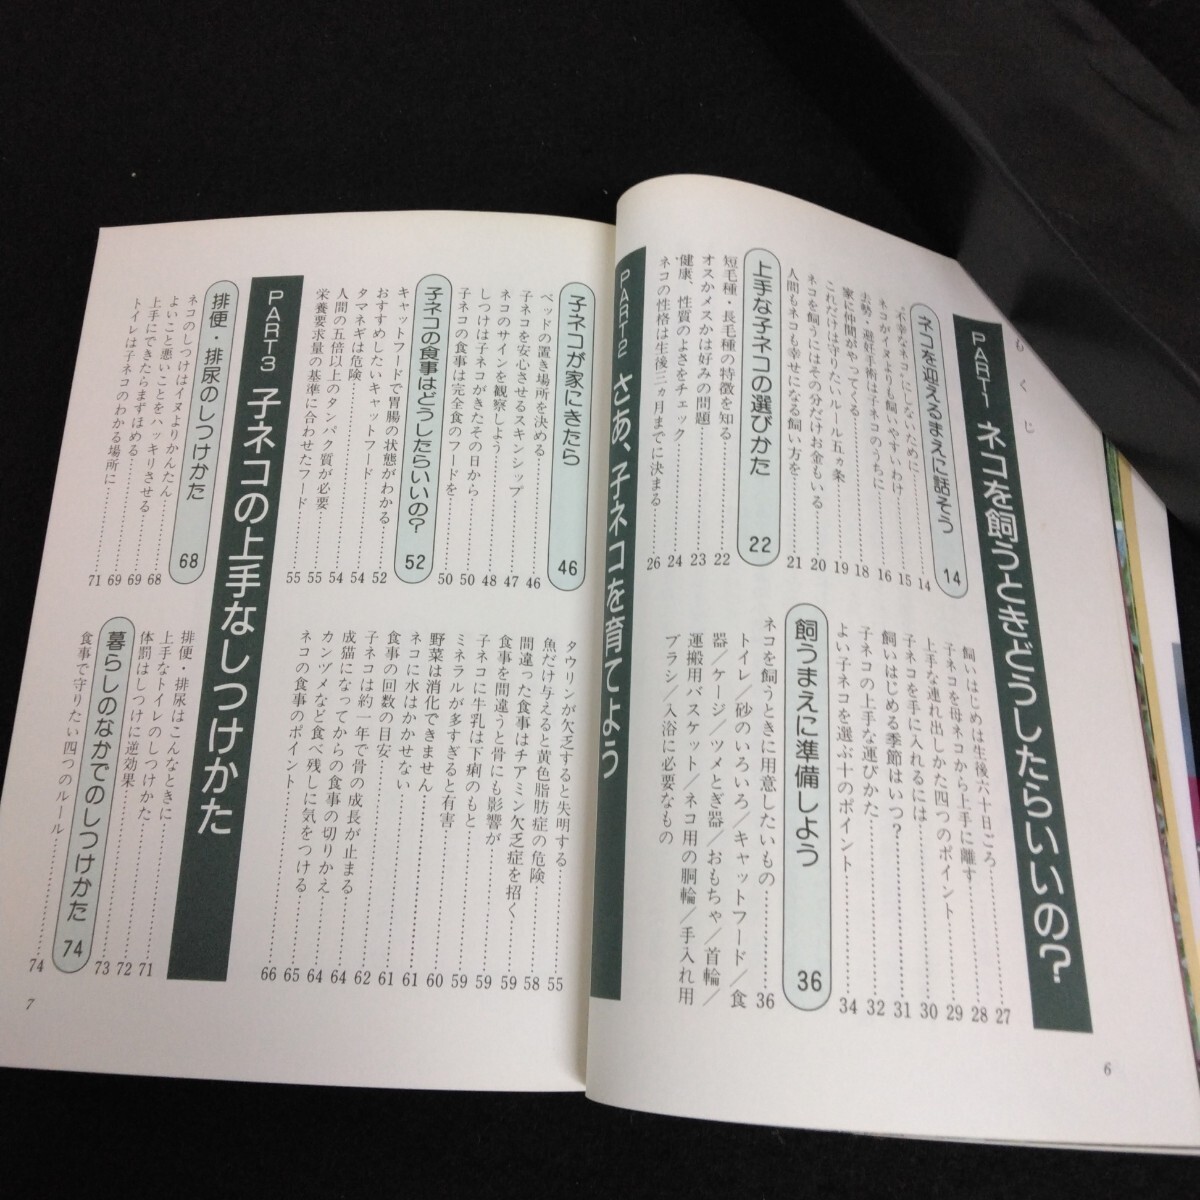 もくじ
PART1 ネコを飼うときどうしたらいいの?
ネコを迎えるまえに話そう 14
"不幸なネコ"にしないために 14
ネコがイヌよりも飼いやすいわけ 15
去勢・避妊手術は子ネコのうちに 16
家に仲間がやってくる 18
これだけは守りたいルール五ヵ条 19
ネコを飼うにはその分だけお金もいる 20
人間もネコも幸せになる飼い方を 21
上手な子ネコの選びかた 22
短毛種・長毛種の特徴を知る 22
オスかメスかは好みの問題 23
健康、性質のよさをチェック 24
ネコの性格は生後三ヵ月までに決まる 26
飼いはじめは生後六十日ごろ 27
子ネコを母ネコから上手に離す 28
上手な連れ出しかた四つのポイント 29
子ネコを手に入れるには 30
飼いはじめる季節はいつ? 31
子ネコの上手な運びかた 32
よい子ネコを選ぶ十のポイント 34
飼うまえに準備しよう 36
ネコを飼うときに用意したいもの 36
トイレ/砂のいろいろ/キャットフード/食
器/ケージ/ツメとぎ器/おもちゃ/首輪/
運搬用バスケット/ネコ用の胴輪/手入れ用
ブラシ/入浴に必要なもの
PART2 さあ、子ネコを育てよう
6
子ネコが家にきたら 46
ベッドの置き場所を決める 46
子ネコを安心させるスキンシップ 47
ネコのサインを観察しよう 48
しつけは子ネコがきたその日から 50
子ネコの食事は完全食のフードを 50
子ネコの食事はどうしたらいいの? 52
キャットフードで胃腸の状態がわかる 52
おすすめしたいキャットフード 54
タマネギは危険 54
人間の五倍以上のタンパク質が必要 55
栄養要求量の基準に合わせたフード 55
タウリンが欠乏すると失明する 55
魚だけ与えると黄色脂肪症の危険 58
間違った食事はチアミン欠乏症を招く 59
食事を間違うと骨にも影響が 59
子ネコに牛乳は下痢のもと 59
ミネラルが多すぎると有害 59
野菜は消化できません 60
ネコに水はかかせない 61
食事の回数の目安 61
子ネコは約一年で骨の成長が止まる 62
成猫になってからの食事の切りかえ 64
カンヅメなど食べ残しに気をつける 64
ネコの食事のポイント 65
66
PART3 子ネコの上手なしつけかた
排便・排尿のしつけかた 68
ネコのしつけはイヌよりかんたん 68
よいこと悪いことをハッキリさせる 69
上手にできたらまずほめる 69
トイレは子ネコのわかる場所に 71
排便・排尿はこんなときに 71
上手なトイレのしつけかた 72
体罰はしつけに逆効果 73
暮らしのなかでのしつけかた 74
食事で守りたい四つのルール 74
7